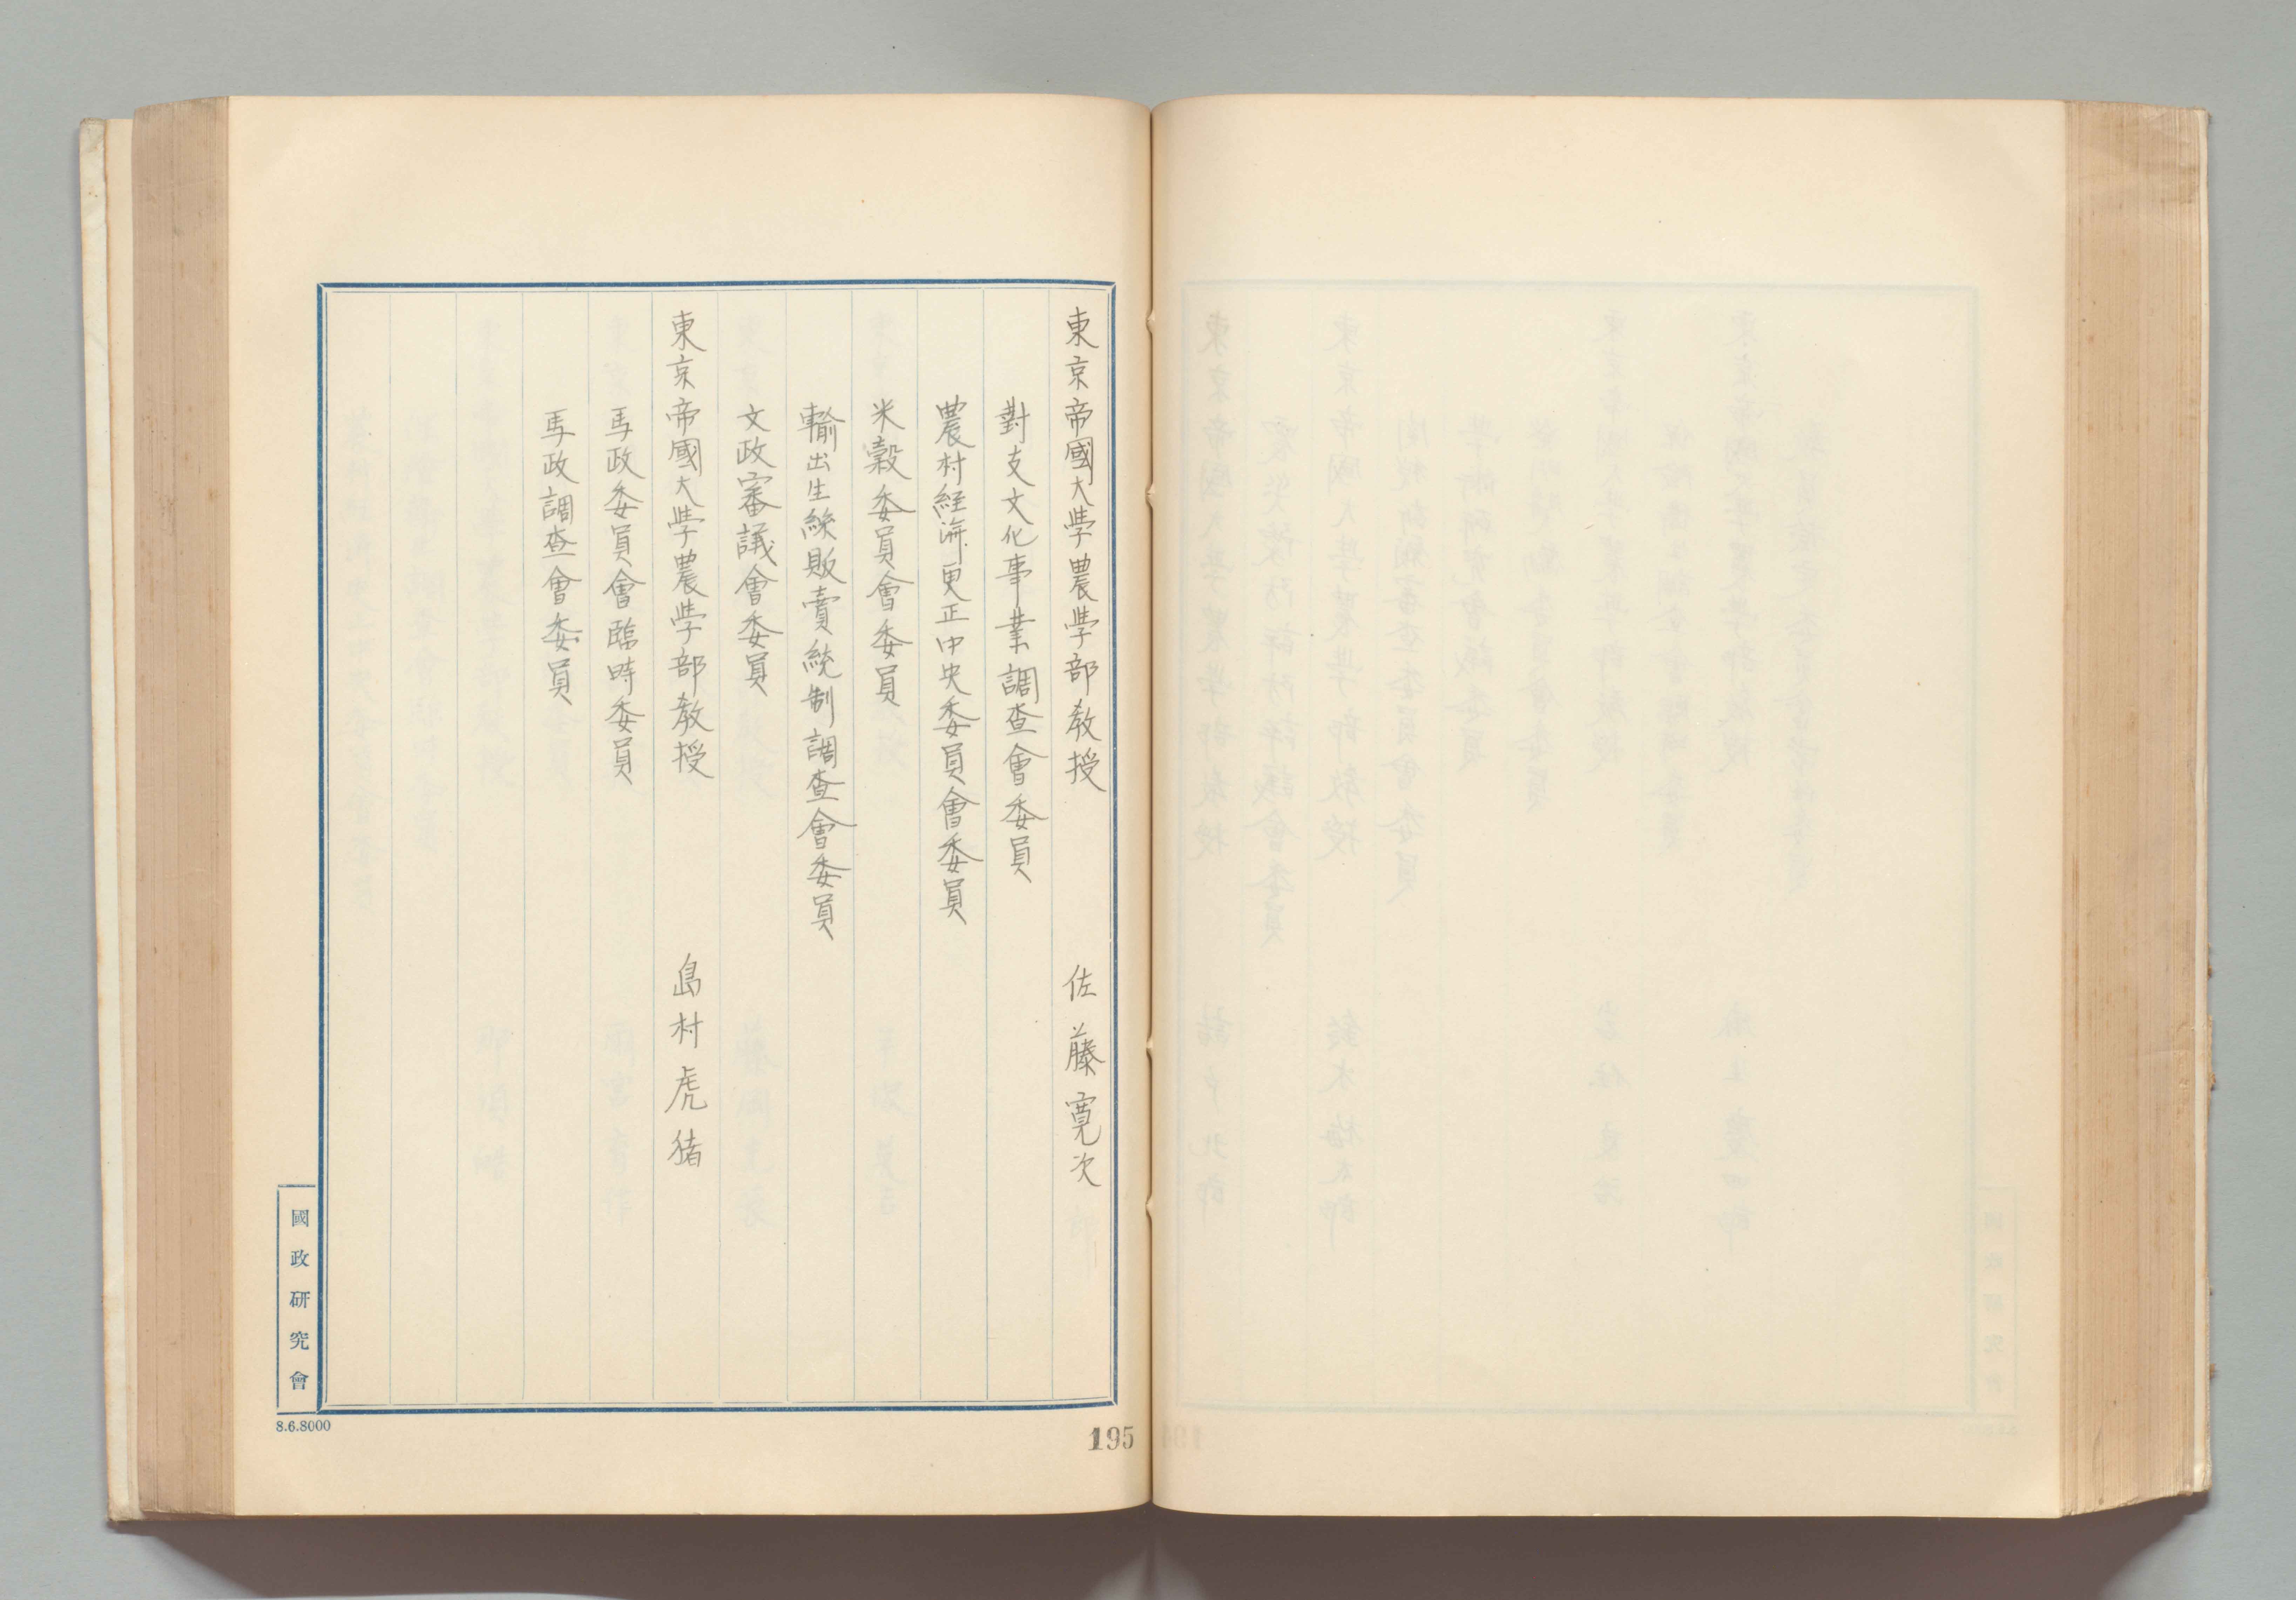 東京帝國大學農學部教授 佐藤寛次
對支文化事業調査會委員
農村経済更正中央委員會委員
米穀委員會委員
輸出生絲販賣統制調査會委員
文政審議會委員
東京帝國大學農學部教授 島村虎猪
馬政委員會臨時委員
馬政調査會委員
國政研究會
8.6.8000
195